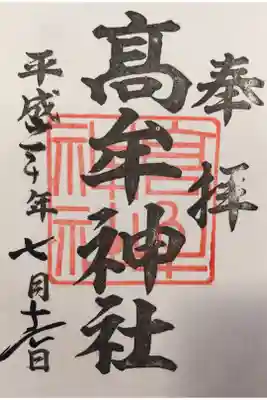 奉拝
髙牟神社
高牟
神社
平成三十年七月十六日